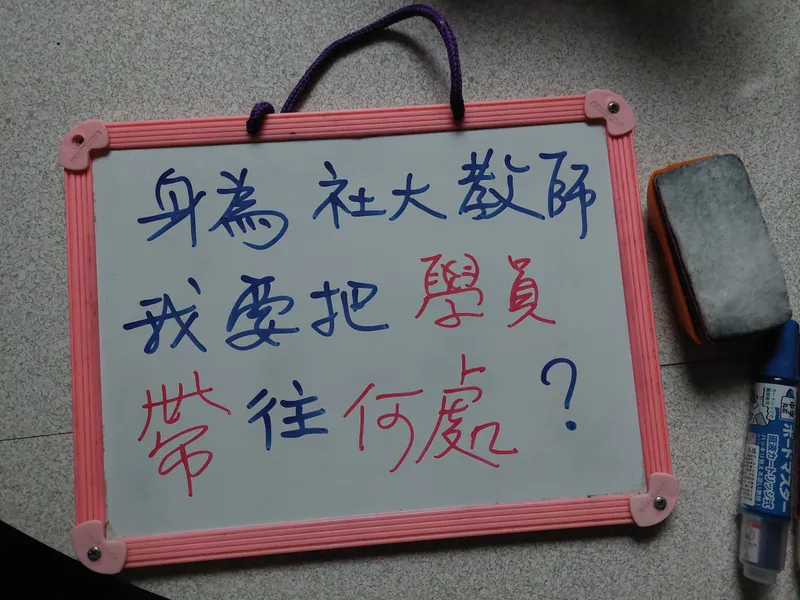 身為 社大教師
我要把 學員
帶往何處?
ボードマスター